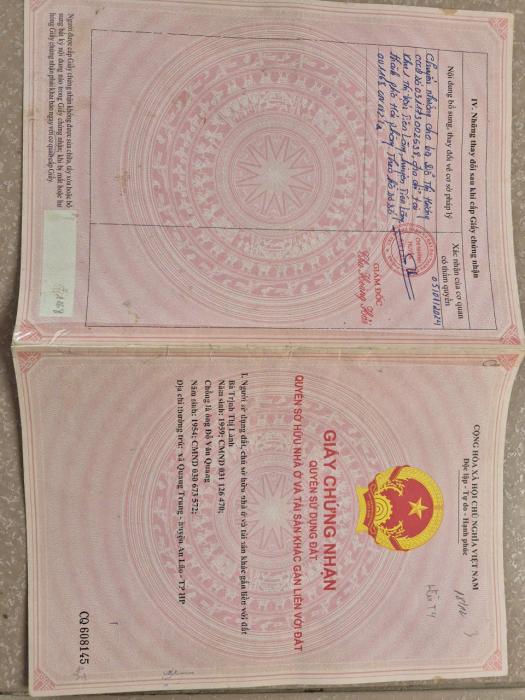 CỘNG HÒA XÃ HỘI CHỦ NGHĨA VIỆT NAM
Độc lập - Tự do - Hạnh phúc
GIẤY CHỨNG NHẬN
QUYỀN SỬ DỤNG ĐẤT,
QUYỀN SỞ HỮU NHÀ Ở VÀ TÀI SẢN KHÁC GẮN LIỀN VỚI ĐẤT
I. Người sử dụng đất, chủ sở hữu nhà ở và tài sản khác gắn liền với đất
Bà Trịnh Thị Lành
Năm sinh: 1959; CMND 031 126 470;
Chồng là ông Đỗ Văn Quang
Năm sinh: 1954; CMND 030 673 572;
Địa chỉ thường trú: xã Quang Trung - huyện An Lão - TP HP
CQ 608145
IV. Những thay đổi sau khi cấp Giấy chứng nhận
Nội dung bổ sung, thay đổi về cơ sở pháp lý
Xác nhận của cơ quan
có thẩm quyền
Chuyển nhượng cho bà Đỗ Thị Hương
CCCD số 031193002638, địa chỉ tại
Khu Thị trấn Tiên Lãng, huyện Tiên Lãng,
thành phố Hải Phòng. Theo hồ sơ số
05/01/2024
GIÁM ĐỐC
Người được cấp Giấy chứng nhận không được sửa chữa, tẩy xóa hoặc bổ
sung bất kỳ nội dung nào trong Giấy chứng nhận; khi bị mất hoặc hư
hỏng Giấy chứng nhận phải khai báo ngay với cơ quan cấp Giấy.